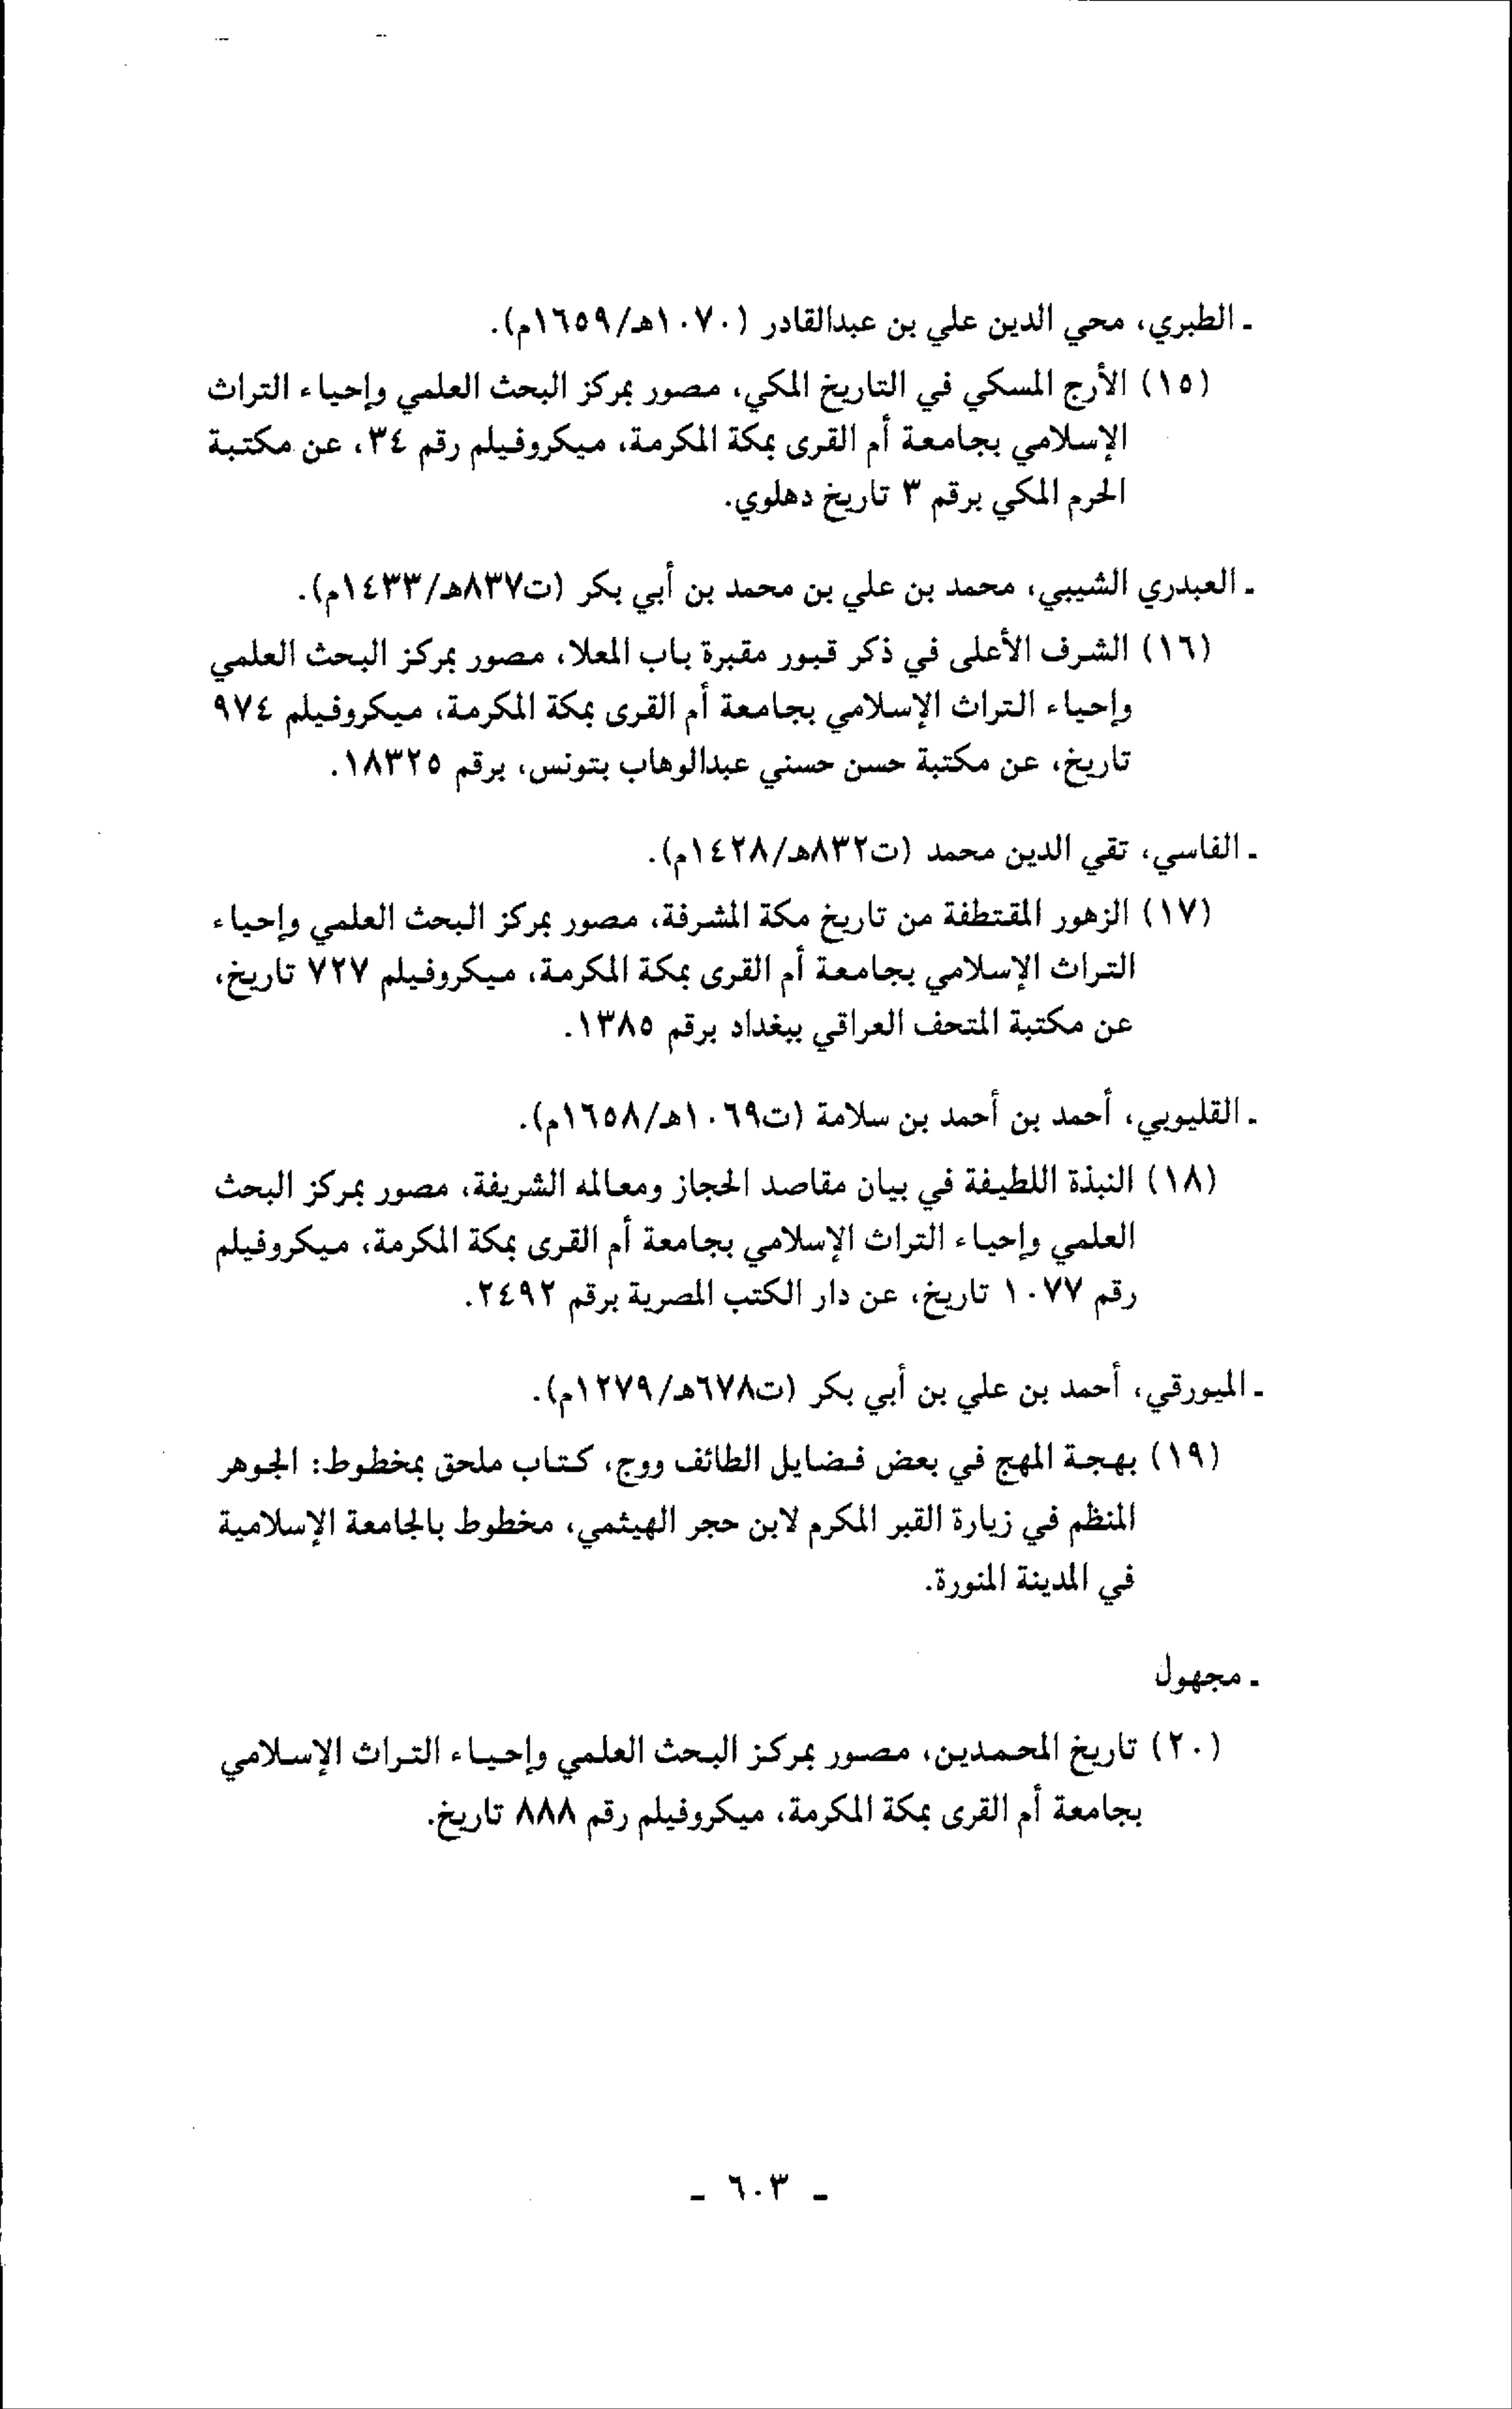 ـ الطبري، محي الدين علي بن عبدالقادر (١٠٧٠هـ/١٦٥٩م).
(١٥) الأرج المسكي في التاريخ المكي، مصور بمركز البحث العلمي وإحياء التراث
الإسلامي بجامعة أم القرى بمكة المكرمة، ميكروفيلم رقم ٣٤، عن مكتبة
الحرم المكي برقم ٣ تاريخ دهلوي.
ـ العبدري الشيبي، محمد بن علي بن محمد بن أبي بكر (ت٨٣٧هـ/١٤٣٣م).
(١٦) الشرف الأعلى في ذكر قبور مقبرة باب المعلا، مصور بمركز البحث العلمي
وإحياء التراث الإسلامي بجامعة أم القرى بمكة المكرمة، ميكروفيلم ٩٧٤
تاريخ، عن مكتبة حسن حسني عبدالوهاب بتونس، برقم ١٨٣٢٥.
ـ الفاسي، تقي الدين محمد (ت٨٣٢هـ/١٤٢٨م).
(١٧) الزهور المقتطفة من تاريخ مكة المشرفة، مصور بمركز البحث العلمي وإحياء
التراث الإسلامي بجامعة أم القرى بمكة المكرمة، ميكروفيلم ٧٢٧ تاريخ،
عن مكتبة المتحف العراقي ببغداد برقم ١٣٨٥.
ـ القليوبي، أحمد بن أحمد بن سلامة (ت١٠٦٩هـ/١٦٥٨م).
(١٨) النبذة اللطيفة في بيان مقاصد الحجاز ومعالمه الشريفة، مصور بمركز البحث
العلمي وإحياء التراث الإسلامي بجامعة أم القرى بمكة المكرمة، ميكروفيلم
رقم ١٠٧٧ تاريخ، عن دار الكتب المصرية برقم ٢٤٩٢.
ـ الميورقي، أحمد بن علي بن أبي بكر (ت٦٧٨هـ/١٢٧٩م).
(١٩) بهجة المهج في بعض فضايل الطائف ووج، كتاب ملحق بمخطوط: الجوهر
المنظم في زيارة القبر المكرم لابن حجر الهيثمي، مخطوط بالجامعة الإسلامية
في المدينة المنورة.
ـ مجهول
(٢٠) تاريخ المحمدين، مصور بمركز البحث العلمي وإحياء التراث الإسلامي
بجامعة أم القرى بمكة المكرمة، ميكروفيلم رقم ٨٨٨ تاريخ.
ـ ٦٠٣ ـ